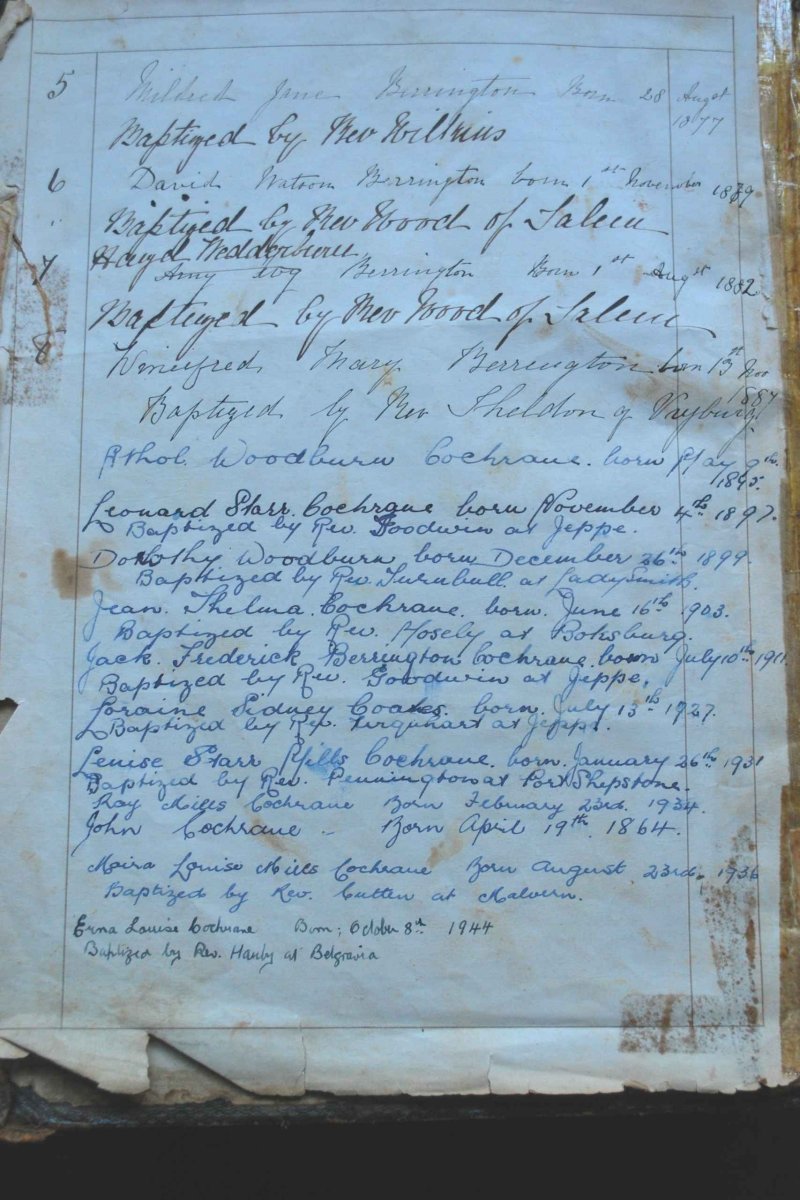 5 Mildred Jane Berrington Born 28 Augst 1877
Baptized by Rev Wilkins
6 David Watson Berrington born 1st November 1879
Baptized by Rev Wood of Salem
7 Hazel Wedderburn
Amy Berrington Born 1st Augst 1882
Baptized by Rev Wood of Salem
8 Wineifred Mary Berrington born 13st Nov 1887
Baptized by Rev Sheldon of Vryburg
Athol. Woodburn Cochrane. born May 9th 1895.
Leonard Starr. Cochrane born November 4th 1897.
Baptized by Rev. Goodwin at Jeppe.
Dorothy Woodburn born December 26th 1899.
Baptized by Rev. Turnbull at Ladysmith.
Jean. Thelma. Cochrane. born. June 16th 1903.
Baptized by Rev. Mosely at Boksburg.
Jack. Frederick Berrington Cochrane. born July 10th 1911.
Baptized by Rev. Goodwin at Jeppe.
Loraine Sidney Coates. born. July 13th 1927.
Baptized by Rev. Urquhart at Jeppe.
Lenise Starr Mills Cochrane. born. January 26th 1931
Baptized by Rev. Pennington at Port Shepstone.
Ray Mills Cochrane Born February 23rd. 1934.
John Cochrane - Born April 19th 1864.
Moira Louise Mills Cochrane Born August 23rd, 1936
Baptized by Rev. Cutten at Malvern.
Erna Louise Cochrane Born; October 8th 1944
Baptized by Rev. Hanby at Belgravia